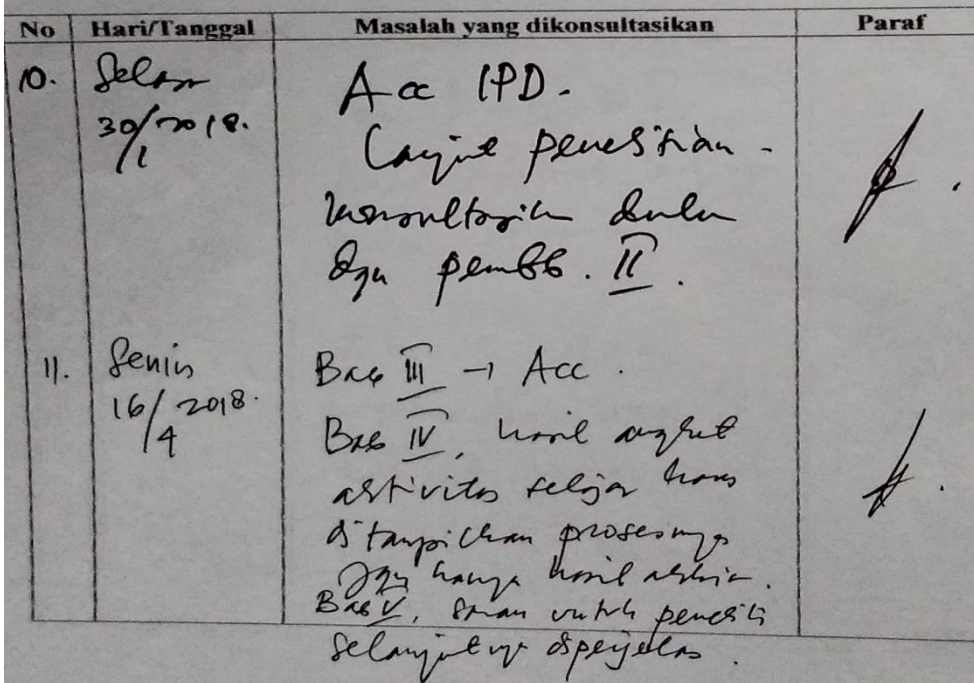 No Hari/Tanggal Masalah yang dikonsultasikan Paraf
10. Selasa Acc IPD.
30/1 2018. Lanjut penelitian -
konsultasikan dulu
dgn pembb. II.
11. Senin Bab III → Acc.
16/4 2018. Bab IV, hasil angket
aktivitas belajar harus
ditampilkan prosesnya
jgn hanya hasil akhir.
Bab V, saran untuk peneliti
selanjutnya diperjelas.